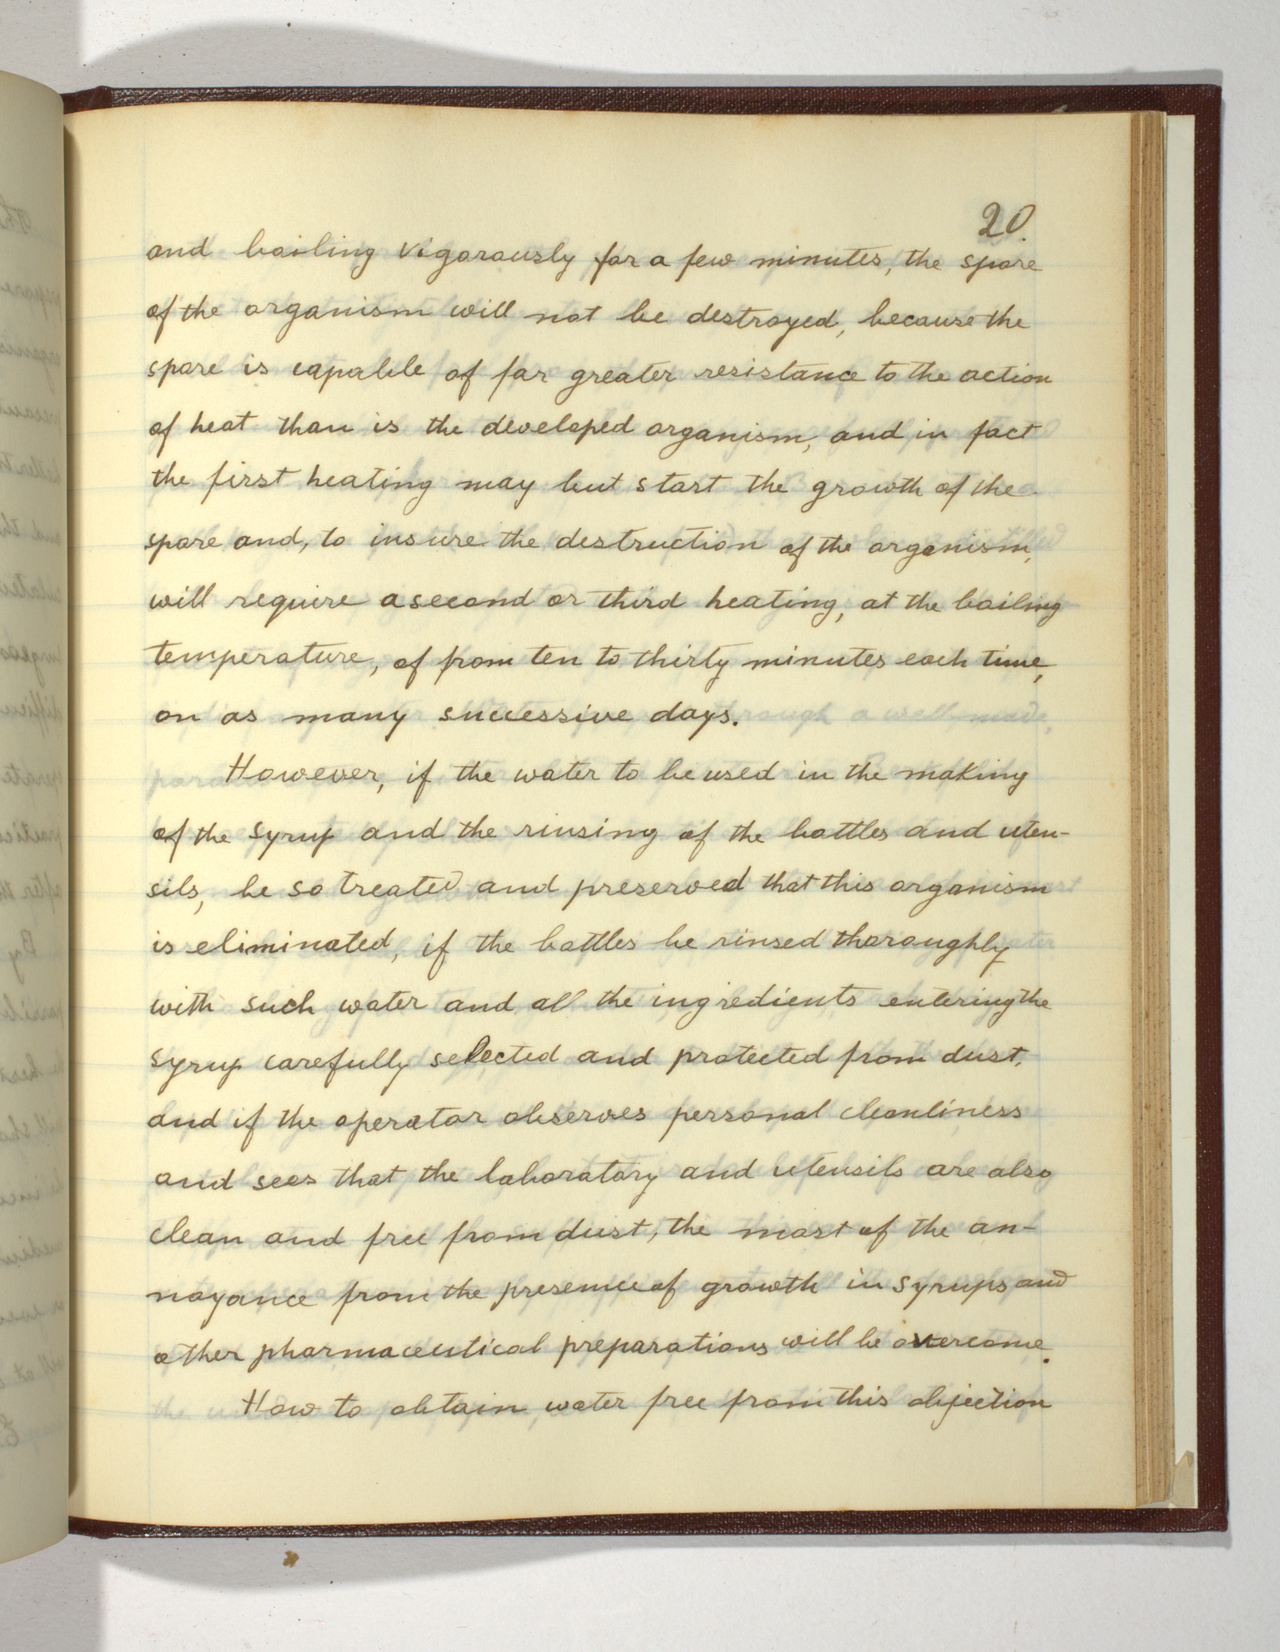 20.
and boiling vigorously for a few minutes, the spore
of the organism will not be destroyed, because the
spore is capable of far greater resistance to the action
of heat than is the developed organism, and in fact
the first heating may but start the growth of the
spore and, to insure the destruction of the organism,
will require a second or third heating, at the boiling
temperature, of from ten to thirty minutes each time,
on as many successive days.
However, if the water to be used in the making
of the syrup and the rinsing of the bottles and uten-
sils, be so treated and preserved that this organism
is eliminated, if the bottles be rinsed thoroughly
with such water and all the ingredients entering the
syrup carefully selected and protected from dust,
and if the operator observes personal cleanliness
and sees that the laboratory and utensils are also
clean and free from dust, the most of the an-
noyance from the presence of growth in syrups and
other pharmaceutical preparations will be overcome.
How to obtain water free from this objection